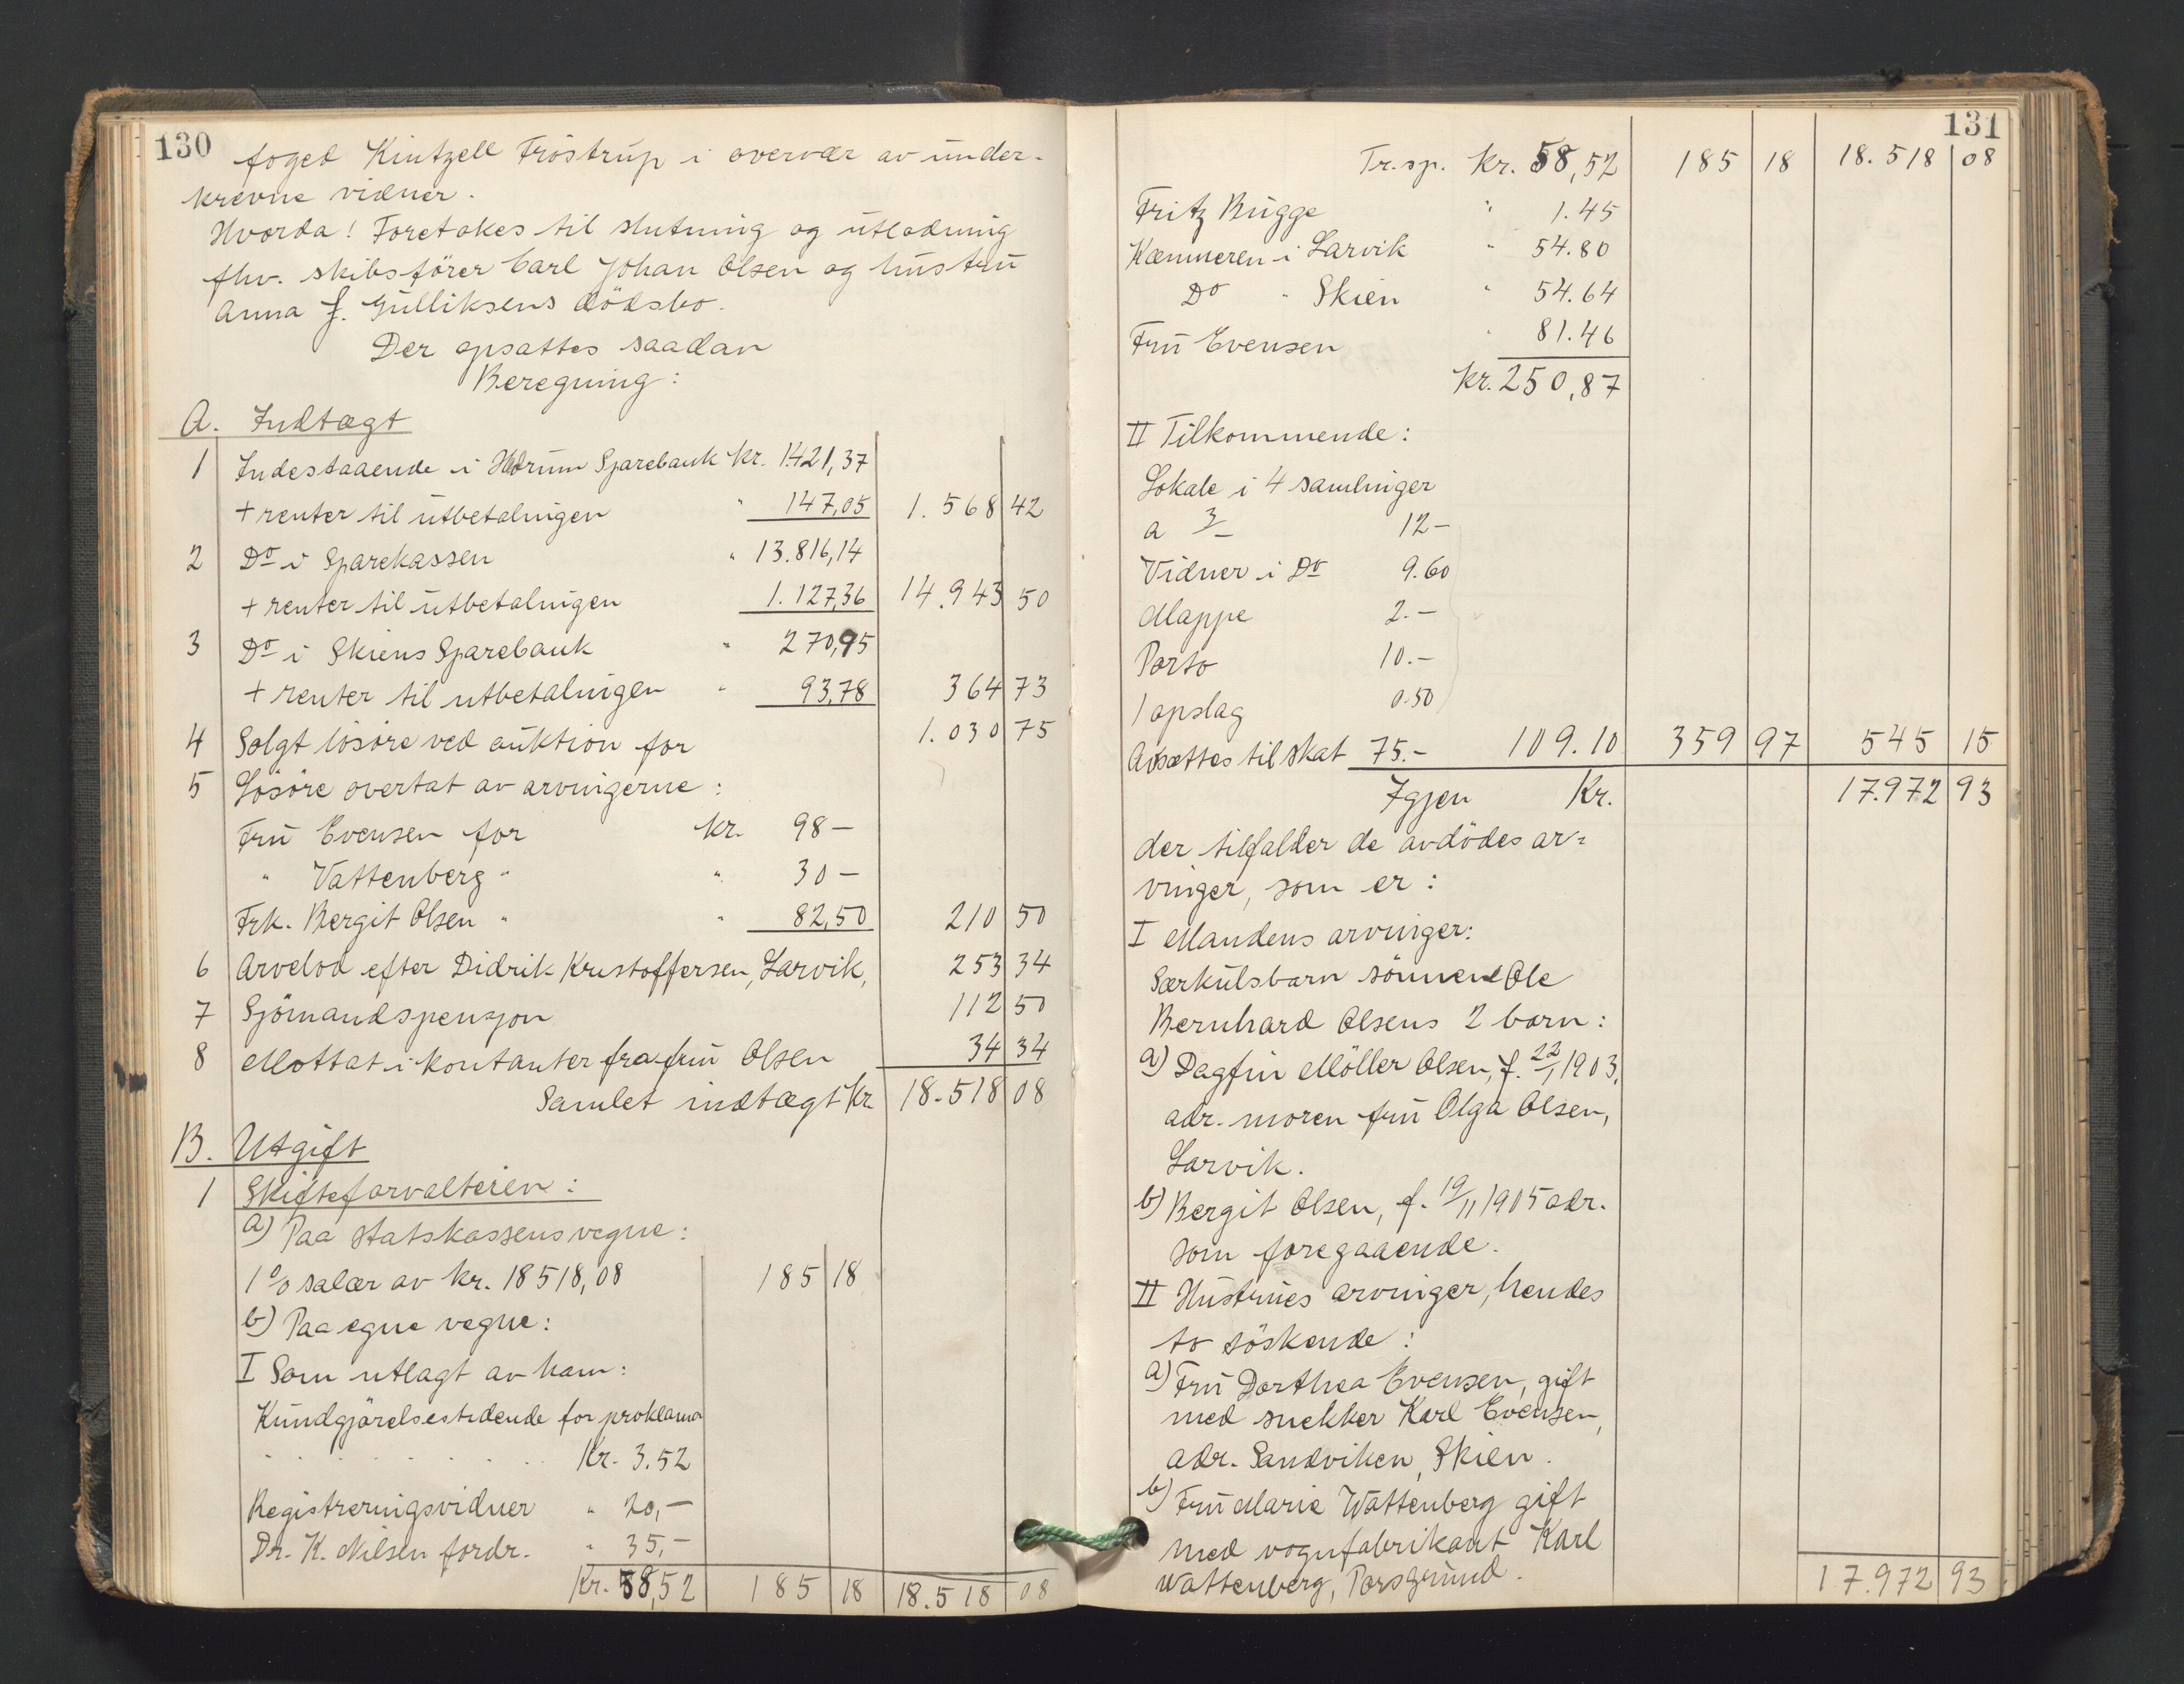 130
foged Kintzell Fröstrup i overvær av under-
krevne vidner.
Hvorda! Foretokes til slutning og utlodning
fhv. skibsförer Carl Johan Olsen og hustru
Anna f. Gulliksens dödsbo.
Der opsattes saadan
Beregning:
A. Indtægt
1 Indestaaende i Hedrum Sparebank Kr. 1421,37
+ renter til utbetalingen " 147,05 1.568 42
2 Do i Sparekassen " 13.816,14
+ renter til utbetalingen 1.127,36 14.943 50
3 Do i Skiens Sparebank " 270,95
+ renter til utbetalingen " 93,78 364 73
4 Solgt lösöre ved auktion for 1.030 75
5 Lösöre overtat av arvingerne:
Fru Evensen for Kr. 98 —
" Vattenberg " " 30 —
Frk. Bergit Olsen " " 82,50 210 50
6 Arvelod efter Didrik Kristoffersen, Larvik, 253 34
7 Sjömandspensjon 112 50
8 Mottat i kontanter fra fru Olsen 34 34
Samlet indtægt Kr. 18.518 08
B. Utgift
1 Skifteforvalteren:
a) Paa statskassens vegne:
1 % salær av kr. 18518,08 185 18
b) Paa egne vegne:
I Som utlagt av ham:
Kundgjörelsestidende for proklama
. . . . . . . Kr. 3.52
Registreringsvidner " 20,—
Dr. K. Nilsen fordr. " 35,—
Kr. 58,52 185 18 18.518 08
131
Tr.sp. Kr. 58,52 185 18 18.518 08
Fritz Bugge " 1.45
Kæmneren i Larvik " 54.80
Do " Skien " 54.64
Fru Evensen " 81.46
Kr. 250,87
II Tilkommende:
Lokale i 4 samlinger
a 3/— 12 —
Vidner i Do 9.60
Mappe 2.—
Porto 10.—
1 opslag 0.50
Avsættes til skat 75.— 109.10 359 97 545 15
Igjen Kr. 17.972 93
der tilfalder de avdödes ar=
vinger, som er:
I Mandens arvinger:
Særkulsbarn sönnen Ole
Bernhard Olsens 2 barn:
a) Dagfin Möller Olsen, f. 22/1 1903,
adr. moren fru Olga Olsen,
Larvik.
b) Bergit Olsen, f. 19/11 1905 adr.
som foregaaende.
II Hustrues arvinger, hendes
to söskende:
a) Fru Dorthea Evensen, gift
med snekker Karl Evensen,
adr. Sandviken, Skien.
b) Fru Marie Wattenberg gift
med vognfabrikant Karl
Wattenberg, Porsgrund.
17.972 93